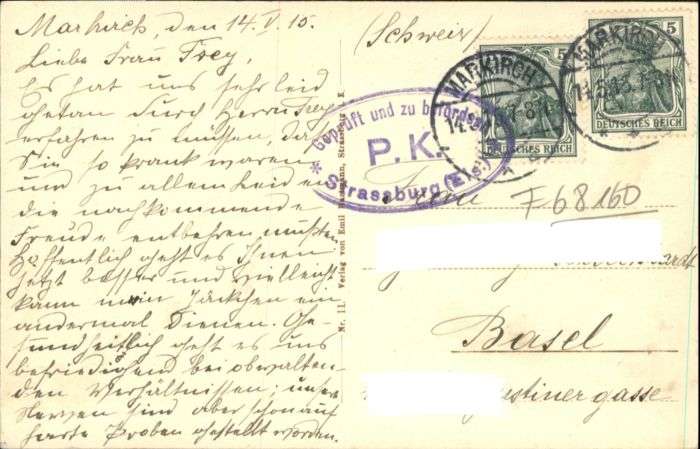 Markirch, den 14. V. 15.
Liebe Frau Frey,
Es hat uns sehr leid
getan durch Herrn Frey
erfahren zu müssen, daß
Sie so krank waren
und zu allem Leiden
die nachkommende
Freude entbehren mußten
Hoffentlich geht es Ihnen
jetzt besser und vielleicht
kann mein Jäckchen ein
andermal dienen. Ge-
sundheitlich geht es uns
befriedigend bei obwalten-
den Verhältnissen; unsere
Nerven sind aber schon auf
harte Proben gestellt worden.
Nr. 11. Verlag von Emil Strassburg i. E.
(Schweiz)
MARKIRCH
14.
7-8N
5
DEUTSCHES REICH
MARKIRCH
5
DEUTSCHES REICH
Geprüft und zu befördern
P. K.
* Strassburg (Els.) *
F 68160
Basel
gasse